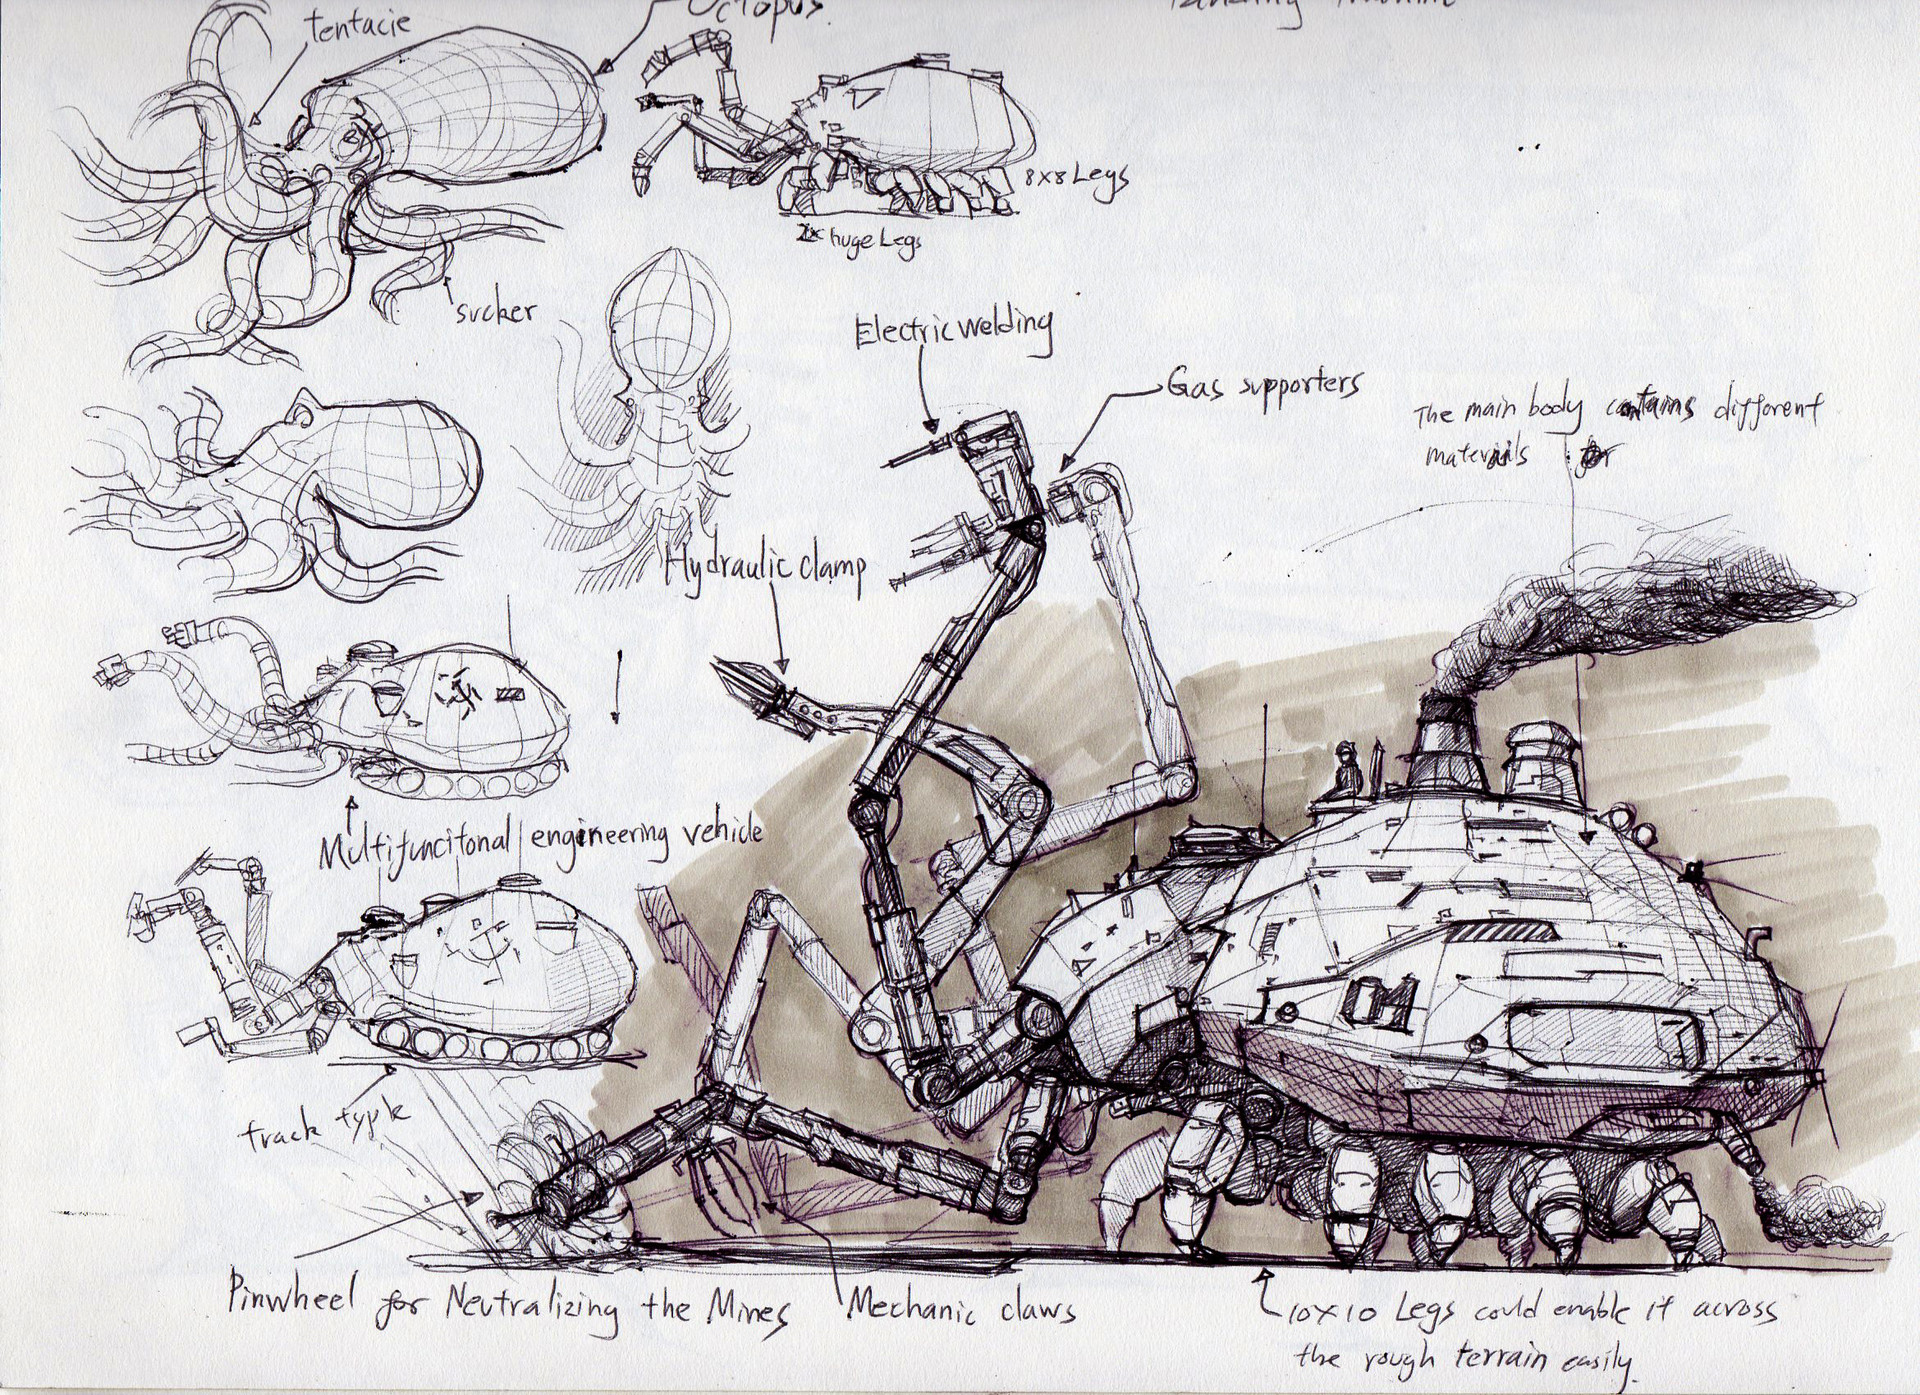 tentacie
Octopus.
Machine
8x8 Legs
huge Legs
sucker
Electric welding
Gas supporters
The main body contains different
materials for
Hydraulic clamp
Multifuncitonal engineering vehicle
04
track typle
Pinwheel for Neutralizing the Mines
Mechanic claws
10x10 Legs could enable it across
the rough terrain easily.